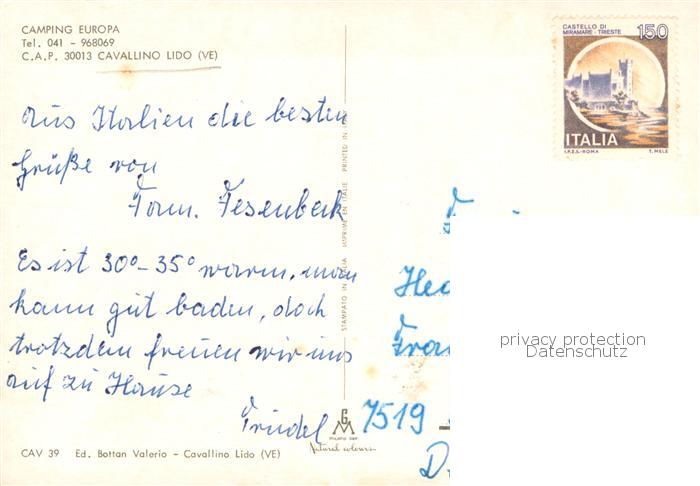 CAMPING EUROPA
Tel. 041 - 968069
C.A.P. 30013 CAVALLINO LIDO (VE)
aus Italien die besten
Grüße von
Fam. Fesenbeck
Es ist 30°-35° warm, man
kann gut baden, doch
trotzdem freuen wir uns
auf zu Hause
Trudel
CAV 39 Ed. Bottan Valerio - Cavallino Lido (VE)
STAMPATO IN ITALIA IMPRIME EN ITALIE PRINTED IN
GM
Natural colours
CASTELLO DI
MIRAMARE - TRIESTE
150
ITALIA
I.P.Z.S.-ROMA T. MELE
7519
privacy protection
Datenschutz